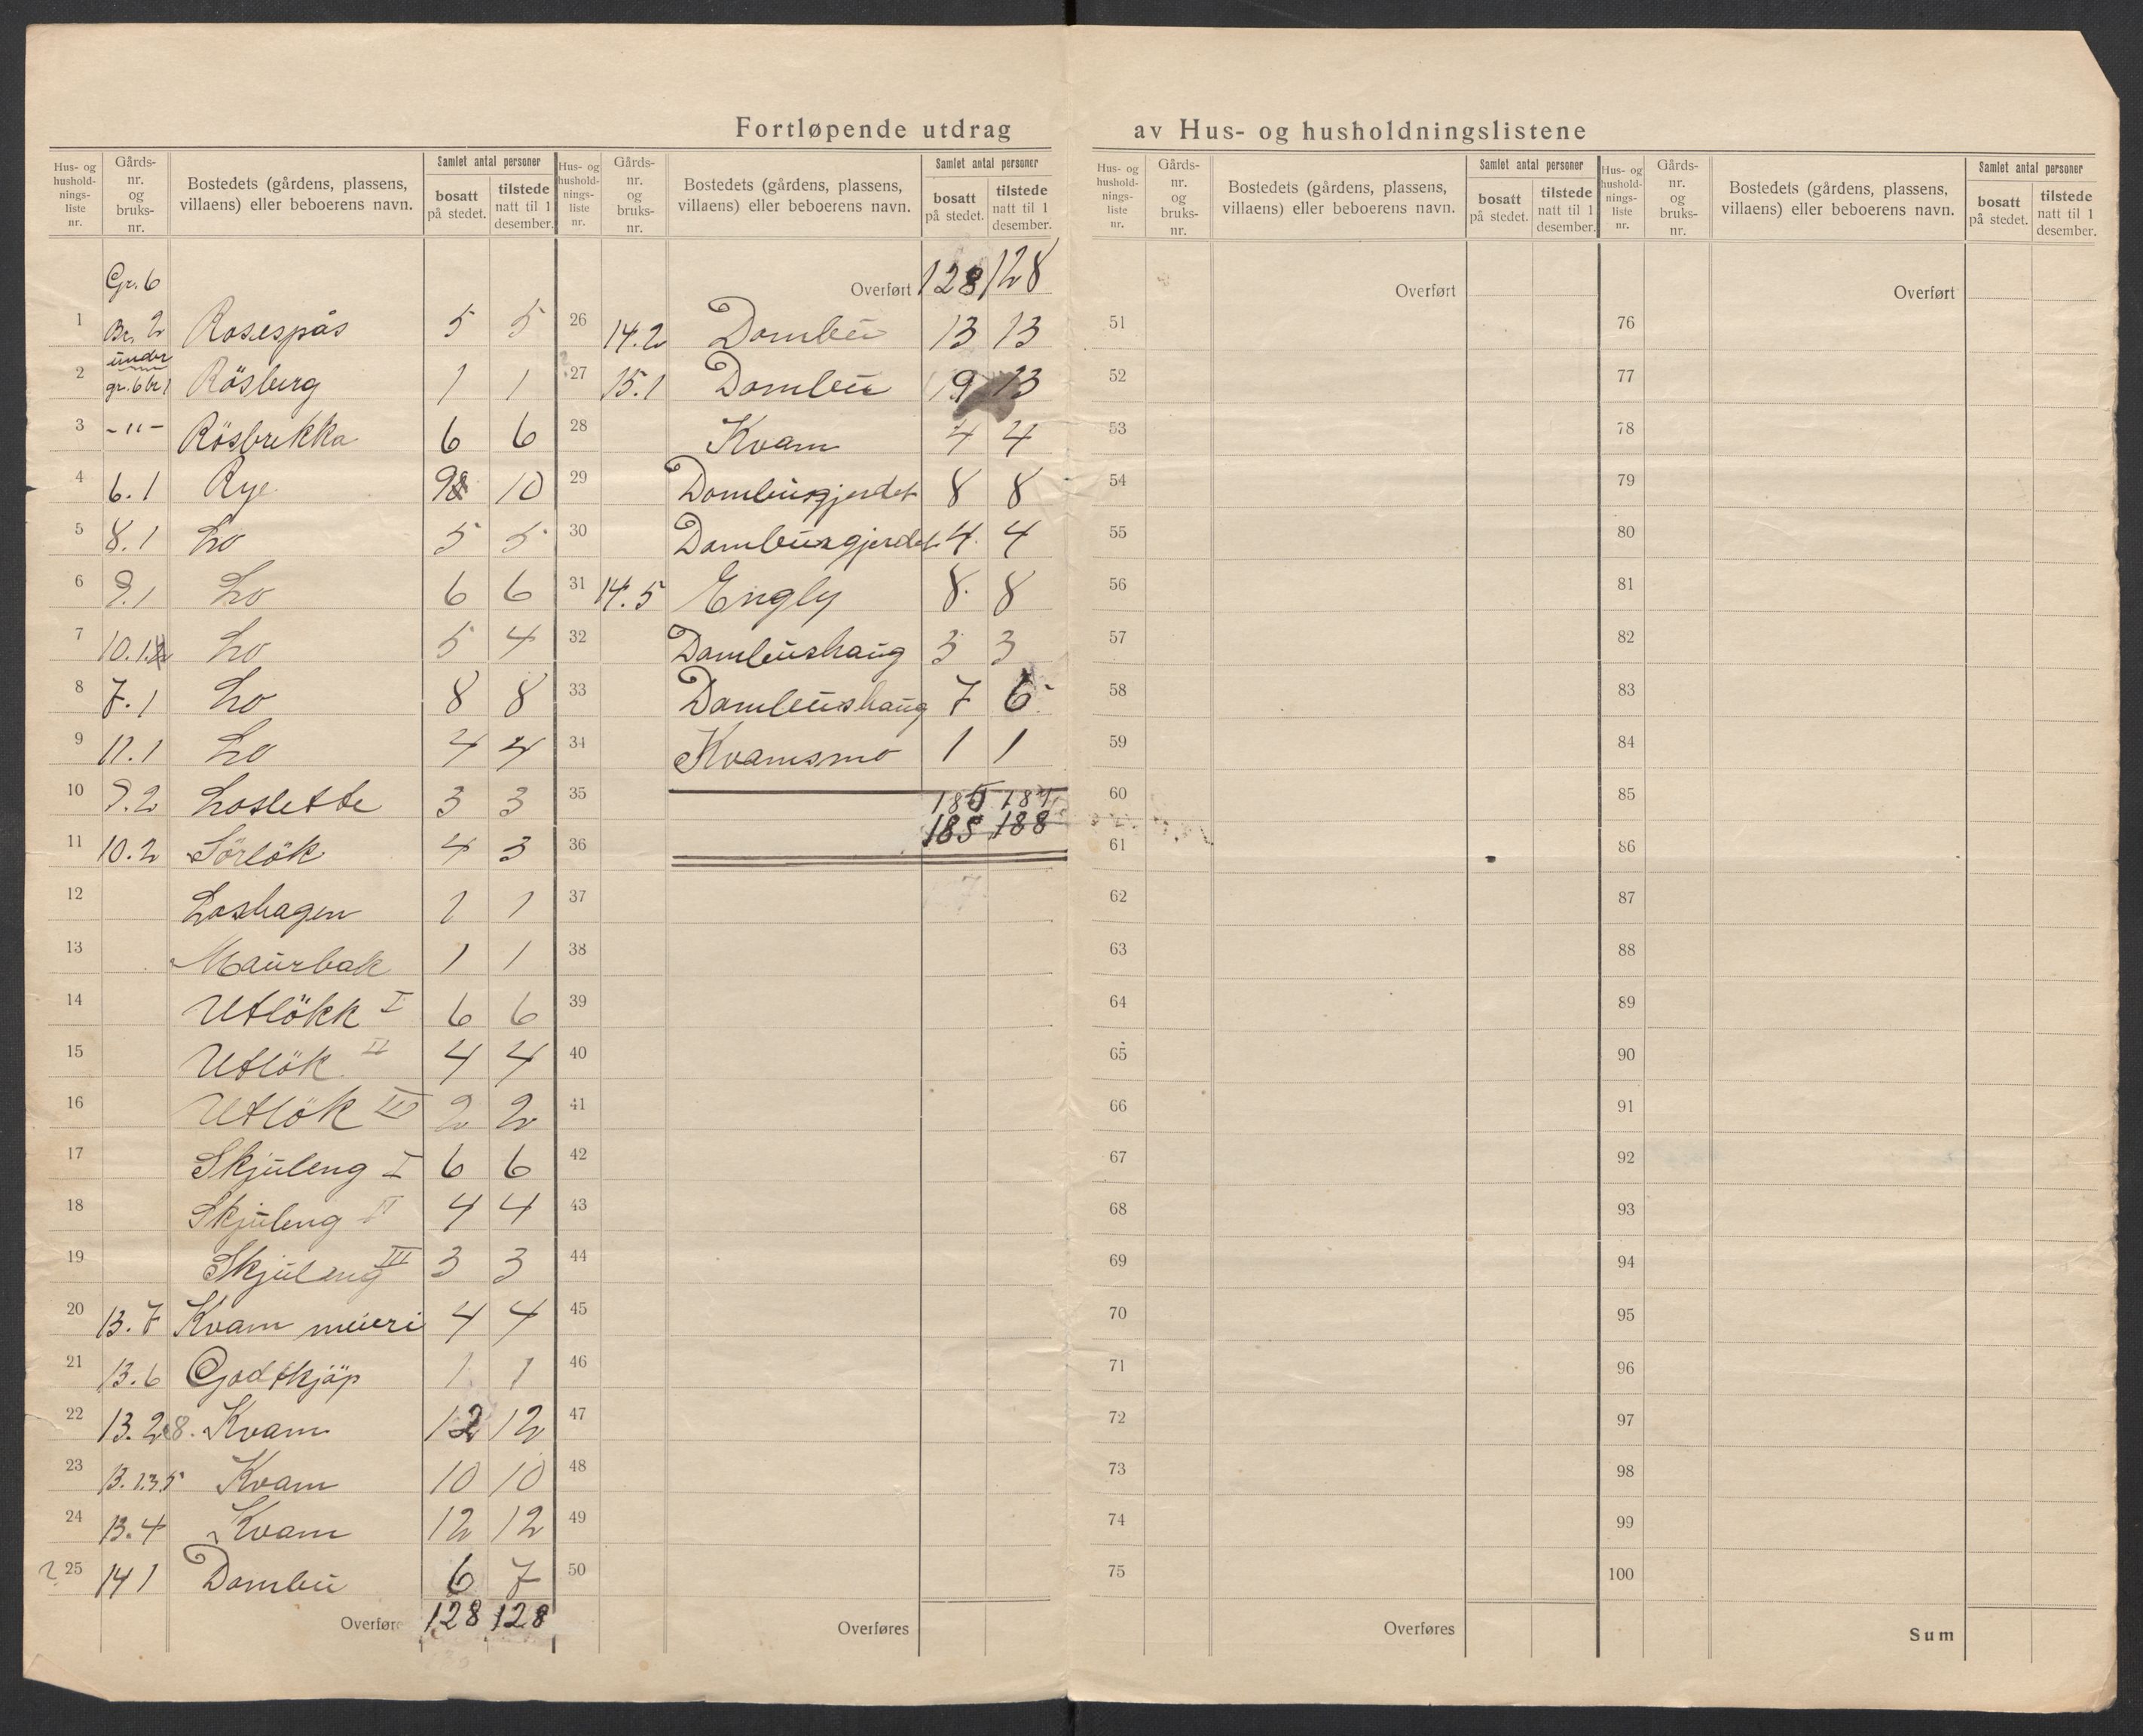 Fortløpende utdrag av Hus- og husholdningslistene
Hus- og hushold-nings-liste nr. Gårds-nr. og bruks-nr. Bostedets (gårdens, plassens, villaens) eller beboerens navn. Samlet antal personer bosatt på stedet. tilstede natt til 1 desember.
Gr. 6
1 Br. 2 Rosespås 5 5
2 under gr. 6 br 1 Rösberg 1 1
3 -"- Rösbrekka 6 6
4 6.1 Rye 9 10
5 8.1 Lo 5 5
6 9.1 Lo 6 6
7 10.1. Lo 5 4
8 7.1 Lo 8 8
9 11.1 Lo 4 4
10 9.2 Loslette 3 3
11 10.2 Sörlök 4 3
12 Loshagen 1 1
13 Maurbak 1 1
14 Utlökk I 6 6
15 Utlök II 4 4
16 Utlök III 2 2
17 Skjuleng I 6 6
18 Skjuleng II 4 4
19 Skjuleng III 3 3
20 13.7 Kvam meieri 4 4
21 13.6 Godtkjöp 1 1
22 13.2 8. Kvam 12 12
23 13.1.3.5 Kvam 10 10
24 13.4 Kvam 12 12
25 14 1 Dombu 6 7
Overføres 128 128
Hus- og hushold-nings-liste nr. Gårds-nr. og bruks-nr. Bostedets (gårdens, plassens, villaens) eller beboerens navn. Samlet antal personer bosatt på stedet. tilstede natt til 1 desember.
Overført 128 128
26 14.2 Dombu 13 13
27 15.1 Dombu 9 13
28 Kvam 4 4
29 Dombusgjerdet 8 8
30 Dombusgjerdet 4. 4
31 14.5 Engly 8. 8
32 Dombushaug 3 3
33 Dombushaug 7 6
34 Kvamsmo 1 1
35
185 188
36
37
38
39
40
41
42
43
44
45
46
47
48
49
50
Overføres
Hus- og hushold-nings-liste nr. Gårds-nr. og bruks-nr. Bostedets (gårdens, plassens, villaens) eller beboerens navn. Samlet antal personer bosatt på stedet. tilstede natt til 1 desember.
Overført
51
52
53
54
55
56
57
58
59
60
61
62
63
64
65
66
67
68
69
70
71
72
73
74
75
Overføres
Hus- og hushold-nings-liste nr. Gårds-nr. og bruks-nr. Bostedets (gårdens, plassens, villaens) eller beboerens navn. Samlet antal personer bosatt på stedet. tilstede natt til 1 desember.
Overført
76
77
78
79
80
81
82
83
84
85
86
87
88
89
90
91
92
93
94
95
96
97
98
99
100
Sum